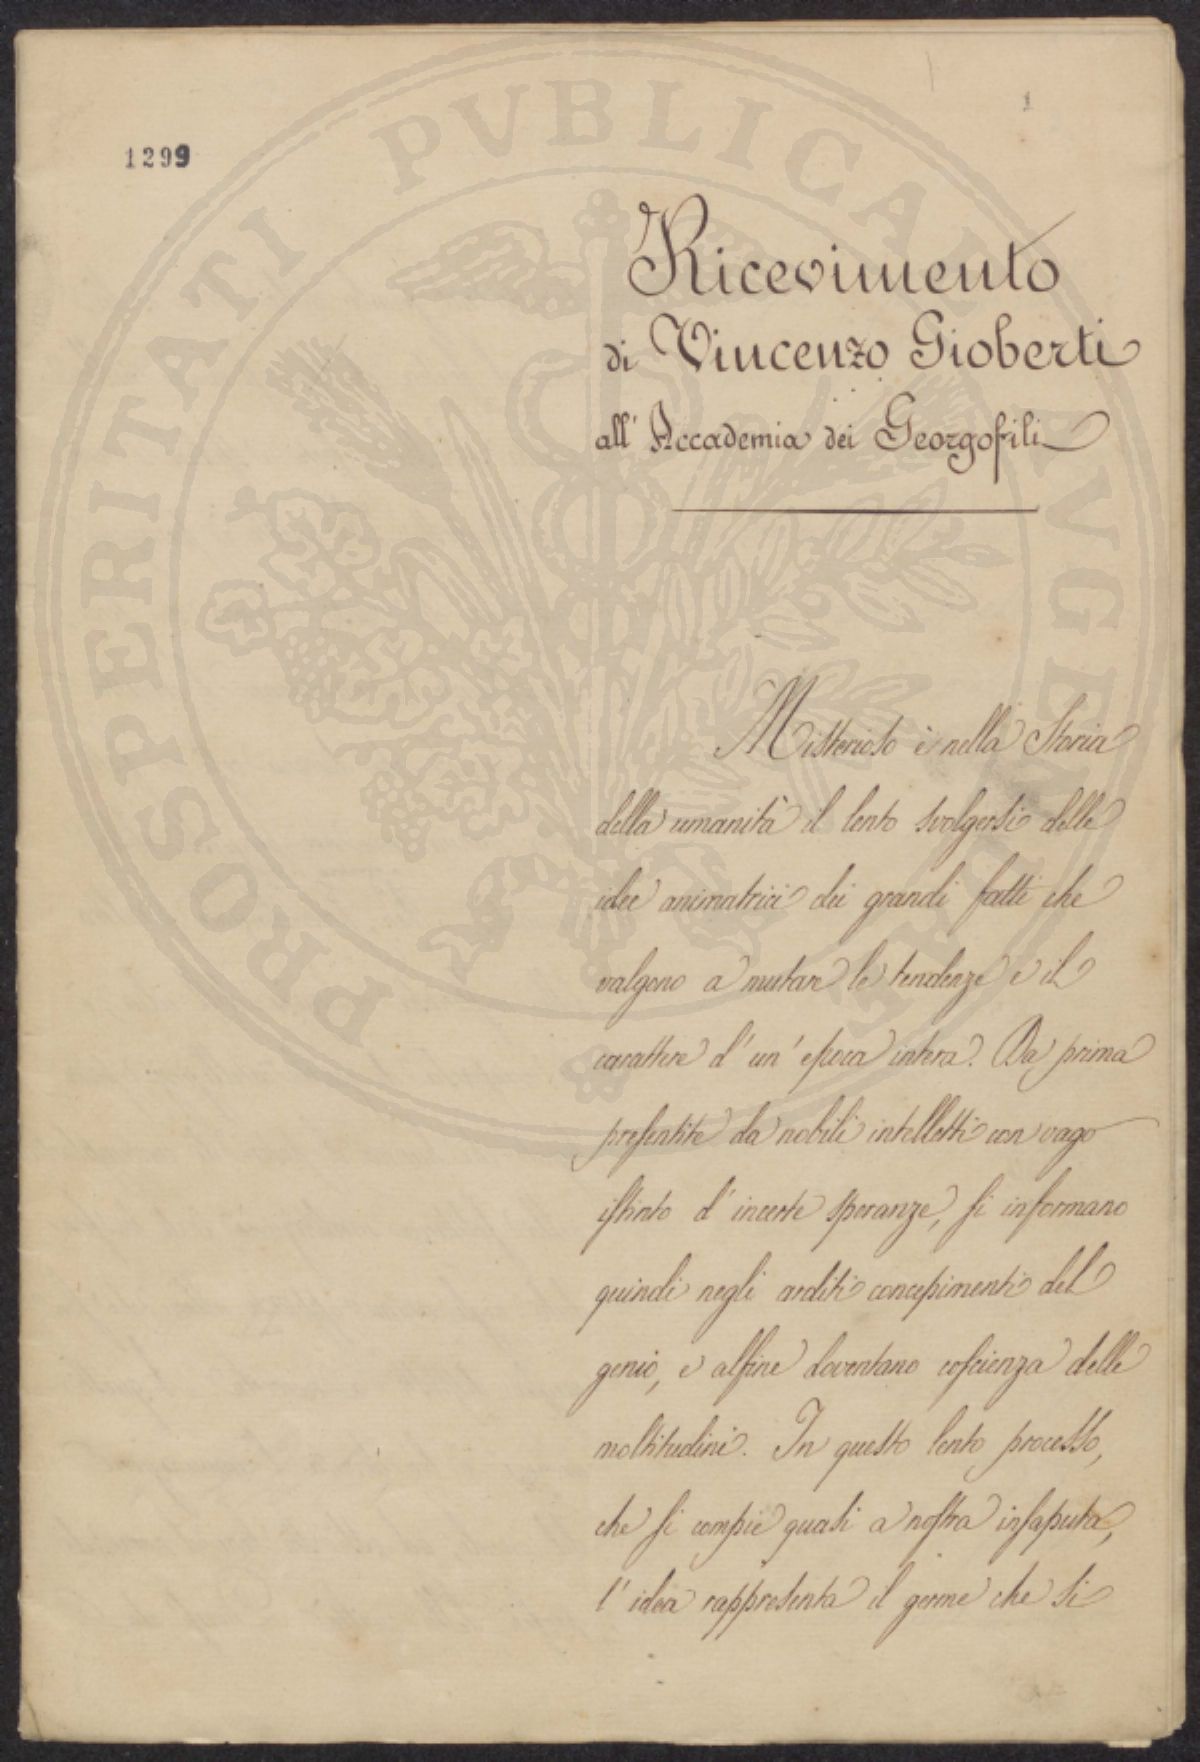 1299
1
Ricevimento
di Vincenzo Gioberti
all' Accademia dei Georgofili
Misterioso è nella Storia
della umanità il lento svolgersi delle
idee animatrici dei grandi fatti che
valgono a mutare le tendenze e il
carattere d'un' epoca intera. Da prima
presentite da nobili intelletti con vago
istinto d' incerte speranze, si informano
quindi negli arditi concepimenti del
genio, e alfine doventano coscienza delle
moltitudini. In questo lento processo,
che si compie quasi a nostra insaputa,
l' idea rappresenta il germe che si
PROSPERITATI PVBLICAE AVGENDAE